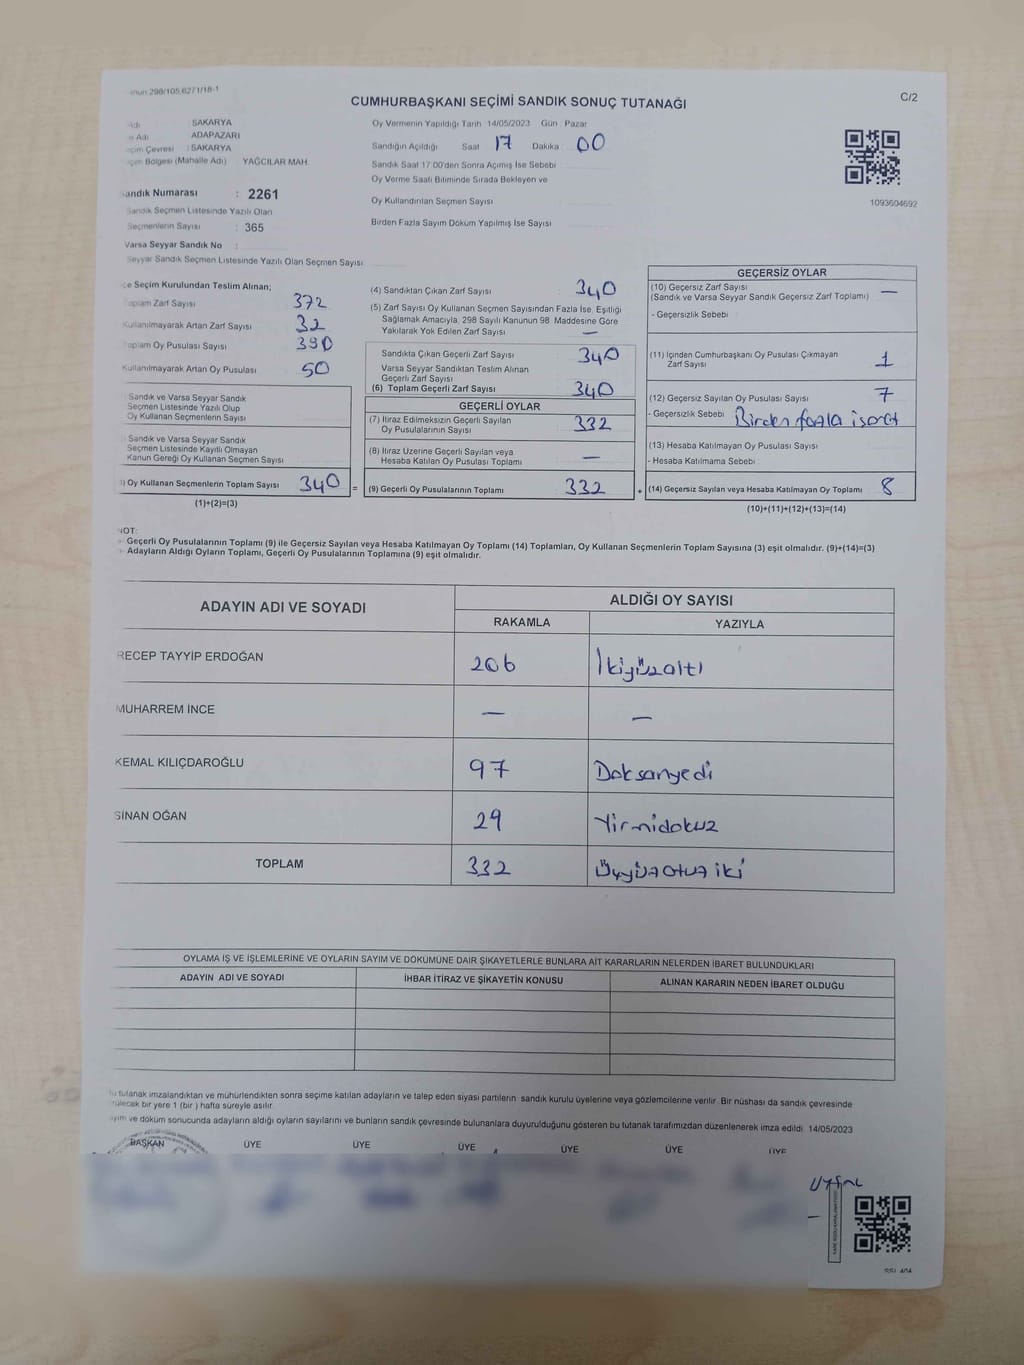 298/105,6271/18-1
C/2
CUMHURBAŞKANI SEÇİMİ SANDIK SONUÇ TUTANAĞI
: SAKARYA
Adı ADAPAZARI
Çevresi : SAKARYA
Bölgesi (Mahalle Adı) YAĞCILAR MAH.
Sandık Numarası : 2261
Sandık Seçmen Listesinde Yazılı Olan
Seçmenlerin Sayısı : 365
Varsa Seyyar Sandık No :
Seyyar Sandık Seçmen Listesinde Yazılı Olan Seçmen Sayısı
Oy Vermenin Yapıldığı Tarih 14/05/2023 Gün Pazar
Sandığın Açıldığı Saat 17 Dakika 00
Sandık Saat 17:00'den Sonra Açılmış İse Sebebi
Oy Verme Saati Bitiminde Sırada Bekleyen ve
Oy Kullandırılan Seçmen Sayısı
Birden Fazla Sayım Döküm Yapılmış İse Sayısı
1093604692
Seçim Kurulundan Teslim Alınan;
Toplam Zarf Sayısı 372
Kullanılmayarak Artan Zarf Sayısı 32
Toplam Oy Pusulası Sayısı 390
Kullanılmayarak Artan Oy Pusulası 50
Sandık ve Varsa Seyyar Sandık
Seçmen Listesinde Yazılı Olup
Oy Kullanan Seçmenlerin Sayısı
Sandık ve Varsa Seyyar Sandık
Seçmen Listesinde Kayıtlı Olmayan
Kanun Gereği Oy Kullanan Seçmen Sayısı
Oy Kullanan Seçmenlerin Toplam Sayısı 340 =
(1)+(2)=(3)
(4) Sandıktan Çıkan Zarf Sayısı 340
(5) Zarf Sayısı Oy Kullanan Seçmen Sayısından Fazla İse, Eşitliği
Sağlamak Amacıyla, 298 Sayılı Kanunun 98. Maddesine Göre
Yakılarak Yok Edilen Zarf Sayısı —
Sandıkta Çıkan Geçerli Zarf Sayısı 340
Varsa Seyyar Sandıktan Teslim Alınan
Geçerli Zarf Sayısı
(6) Toplam Geçerli Zarf Sayısı 340
GEÇERLİ OYLAR
(7) İtiraz Edilmeksizin Geçerli Sayılan
Oy Pusulalarının Sayısı 332
(8) İtiraz Üzerine Geçerli Sayılan veya
Hesaba Katılan Oy Pusulası Toplamı —
(9) Geçerli Oy Pusulalarının Toplamı 332 +
GEÇERSİZ OYLAR
(10) Geçersiz Zarf Sayısı —
(Sandık ve Varsa Seyyar Sandık Geçersiz Zarf Toplamı)
- Geçersizlik Sebebi
(11) İçinden Cumhurbaşkanı Oy Pusulası Çıkmayan
Zarf Sayısı 1
(12) Geçersiz Sayılan Oy Pusulası Sayısı 7
- Geçersizlik Sebebi Birden fazla işaret
(13) Hesaba Katılmayan Oy Pusulası Sayısı
- Hesaba Katılmama Sebebi
(14) Geçersiz Sayılan veya Hesaba Katılmayan Oy Toplamı 8
(10)+(11)+(12)+(13)=(14)
NOT:
Geçerli Oy Pusulalarının Toplamı (9) ile Geçersiz Sayılan veya Hesaba Katılmayan Oy Toplamı (14) Toplamları, Oy Kullanan Seçmenlerin Toplam Sayısına (3) eşit olmalıdır. (9)+(14)=(3)
Adayların Aldığı Oyların Toplamı, Geçerli Oy Pusulalarının Toplamına (9) eşit olmalıdır.
ADAYIN ADI VE SOYADI
ALDIĞI OY SAYISI
RAKAMLA YAZIYLA
RECEP TAYYİP ERDOĞAN 206 İkiyüzaltı
MUHARREM İNCE — —
KEMAL KILIÇDAROĞLU 97 Doksanyedi
SİNAN OĞAN 29 Yirmidokuz
TOPLAM 332 Üçyüzotuziki
OYLAMA İŞ VE İŞLEMLERİNE VE OYLARIN SAYIM VE DÖKÜMÜNE DAİR ŞİKAYETLERLE BUNLARA AİT KARARLARIN NELERDEN İBARET BULUNDUKLARI
ADAYIN ADI VE SOYADI İHBAR İTİRAZ VE ŞİKAYETİN KONUSU ALINAN KARARIN NEDEN İBARET OLDUĞU
tutanak imzalandıktan ve mühürlendikten sonra seçime katılan adayların ve talep eden siyasi partilerin sandık kurulu üyelerine veya gözlemcilerine verilir. Bir nüshası da sandık çevresinde
bir yere 1 (bir) hafta süreyle asılır.
ve döküm sonucunda adayların aldığı oyların sayılarını ve bunların sandık çevresinde bulunanlara duyurulduğunu gösteren bu tutanak tarafımızdan düzenlenerek imza edildi. 14/05/2023
BAŞKAN ÜYE ÜYE ÜYE ÜYE ÜYE ÜYE